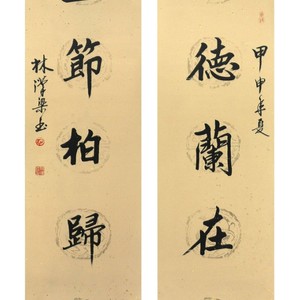 甲申年夏
德蘭在
節柏歸
林梁书